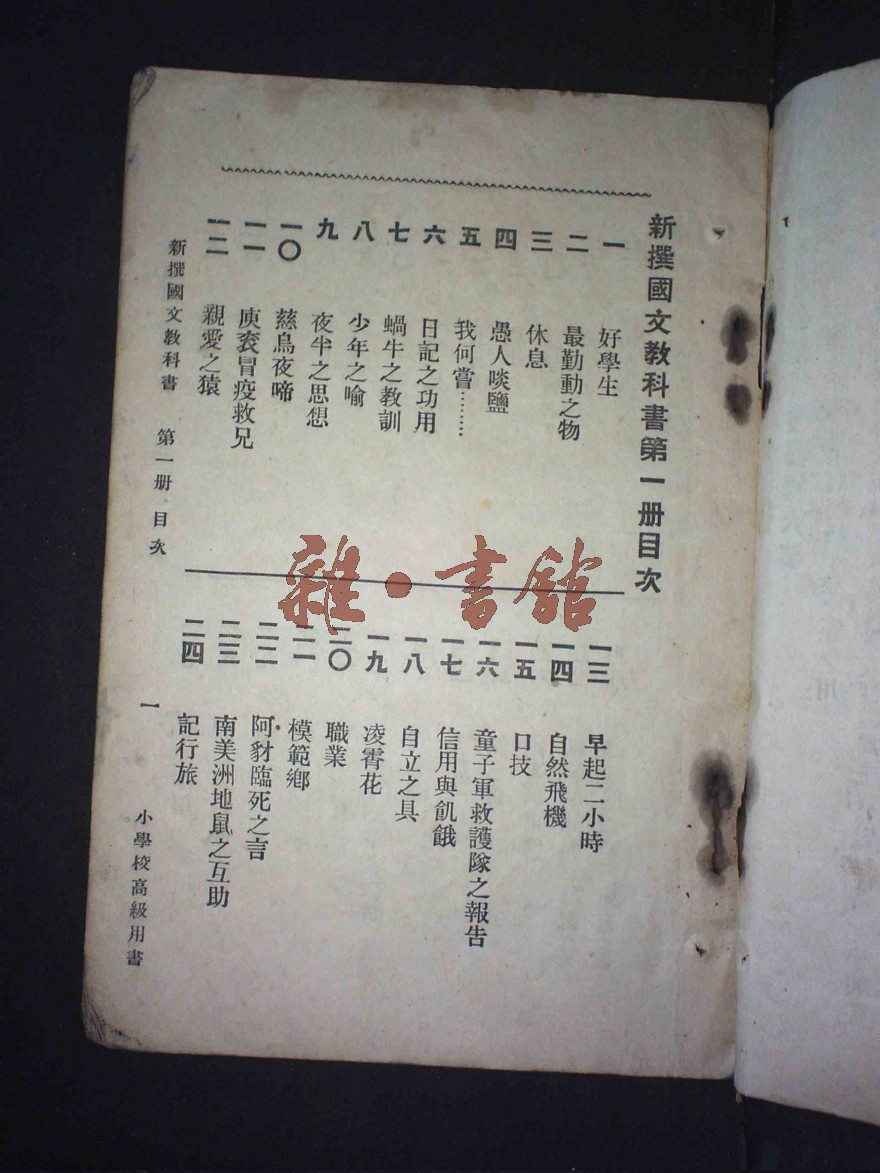 新撰國文教科書第一册目次
一 好學生
二 最勤動之物
三 休息
四 愚人啖鹽
五 我何嘗………
六 日記之功用
七 蝸牛之教訓
八 少年之喻
九 夜半之思想
一〇 慈烏夜啼
一一 庾衮冒疫救兄
一二 親愛之猿
一三 早起二小時
一四 自然飛機
一五 口技
一六 童子軍救護隊之報告
一七 信用與飢餓
一八 自立之具
一九 凌霄花
二〇 職業
二一 模範鄉
二二 阿豺臨死之言
二三 南美洲地鼠之互助
二四 記行旅
新撰國文教科書 第一册 目次 一 小學校高級用書
雜·書館